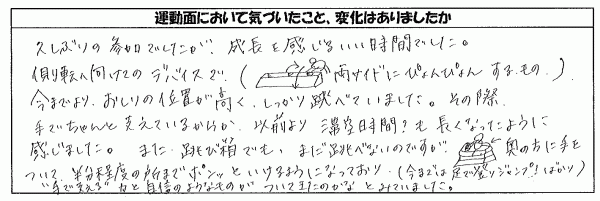 運動面において気づいたこと、変化はありましたか
久しぶりの参加でしたが、成長を感じるいい時間でした。
側転へ向けてのデバイスで、( 両サイドにぴょんぴょんするもの。)
今までより、おしりの位置が高く、しっかり跳べていました。その際、
手でちゃんと支えているからか、以前より滞空時間?も長くなったように
感じました。また、跳び箱でも、まだ跳べないのですが 奥の方に手を
ついて、半分程度の所までポンッといけるようになっており、(今までは足で登りジャンプ!ばかり)
"手で支える"力と自信のようなものがついてきたのかなとみていました。